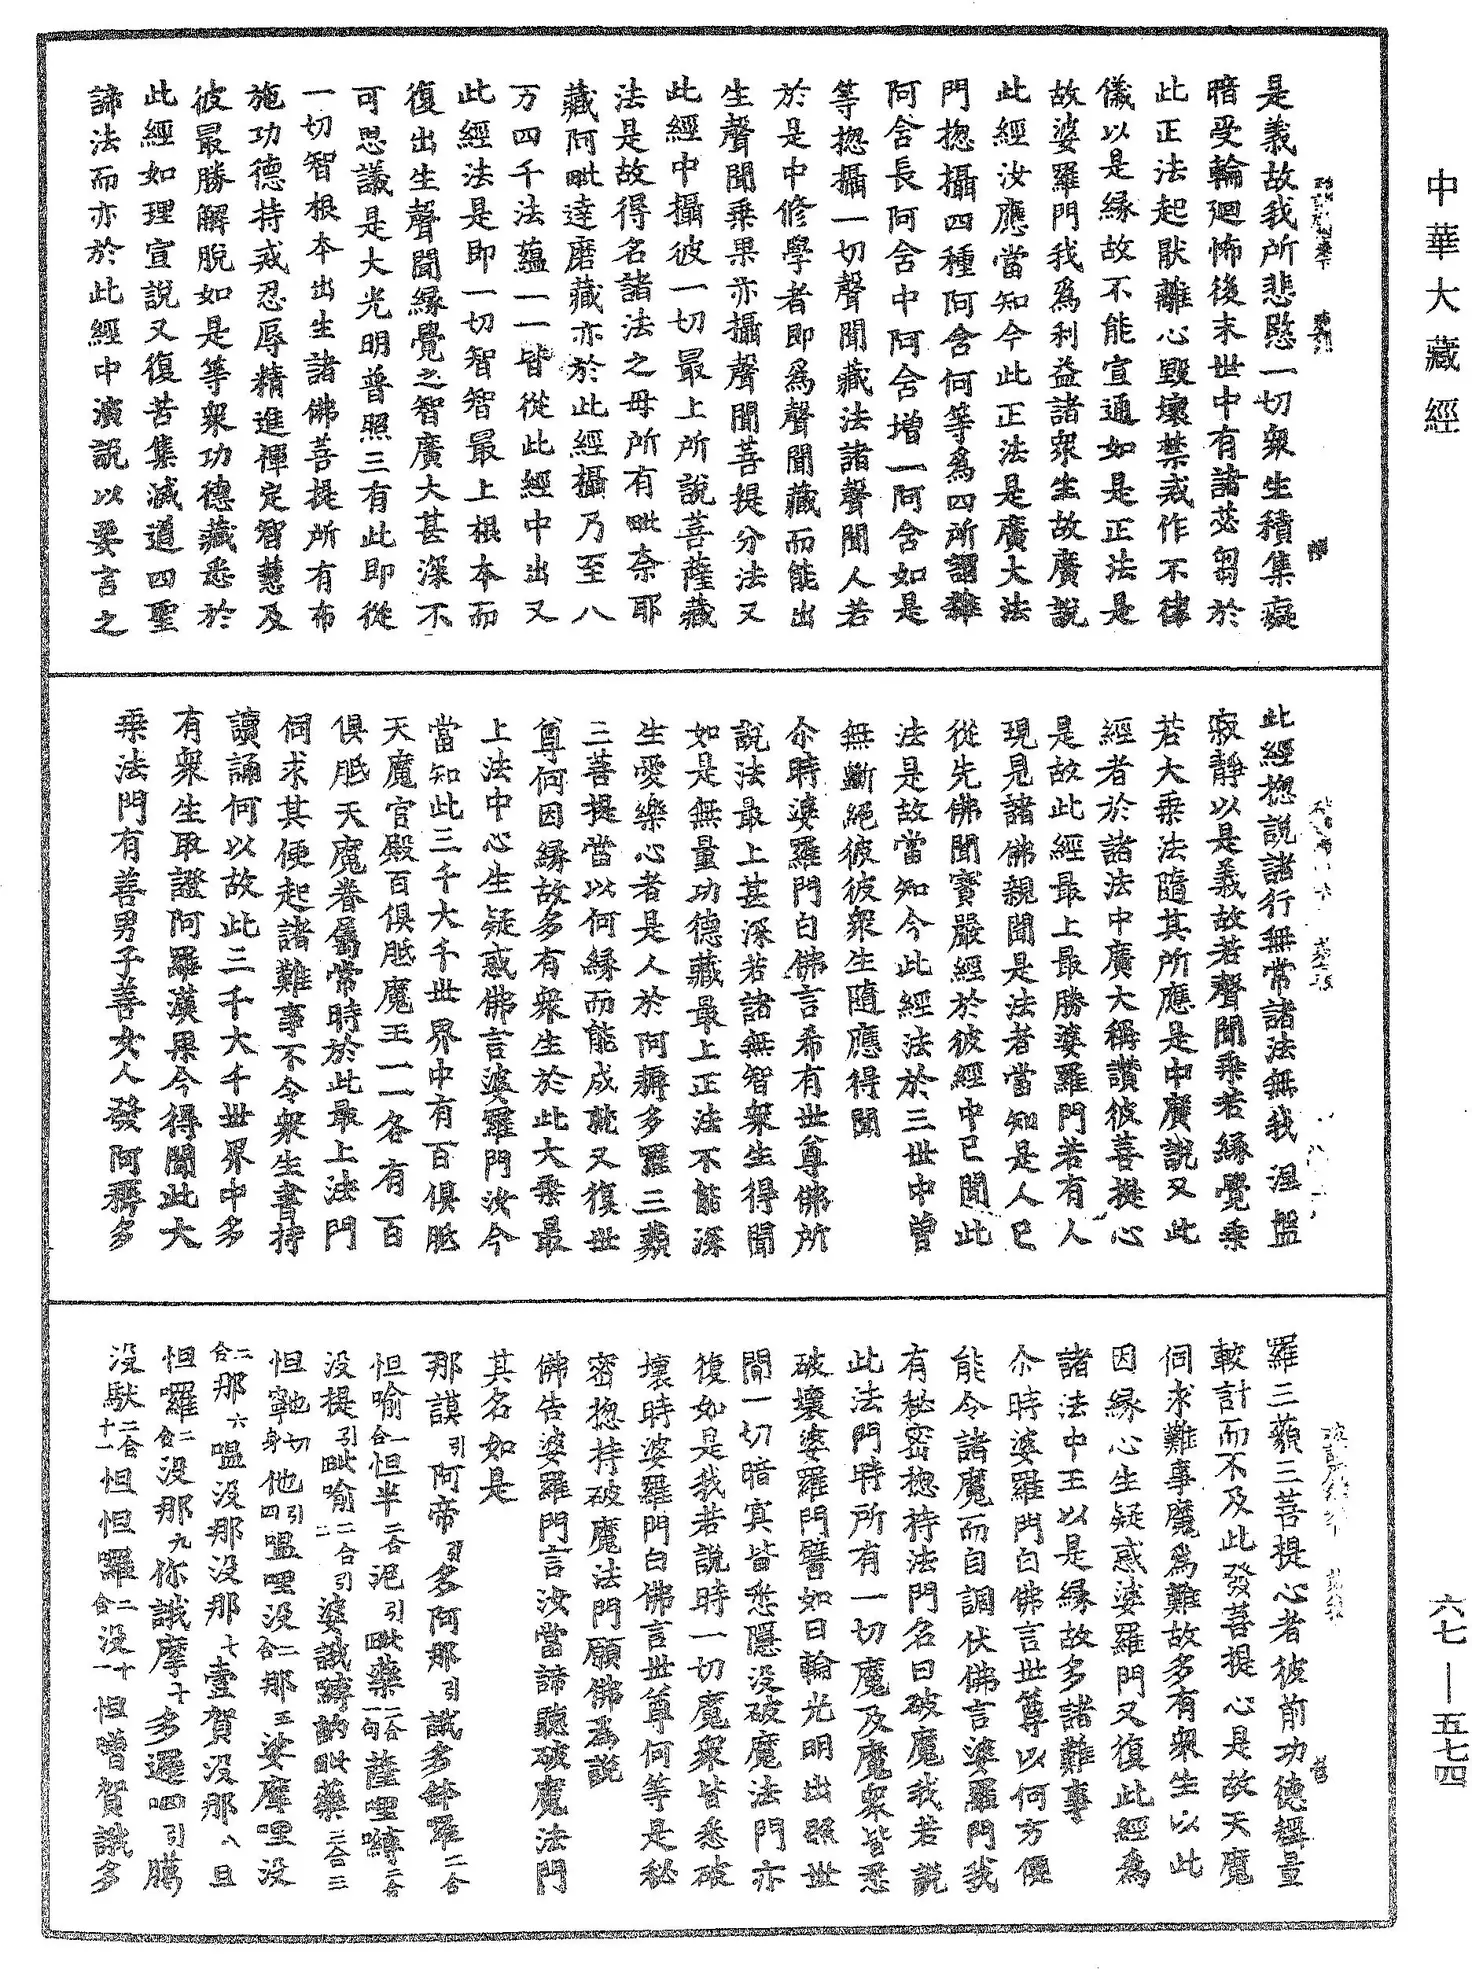 中華大藏經
六七—五七四
是義故我所悲愍一切衆生積集癡
暗受輪廻怖後末世中有諸苾芻於
此正法起猒離心毀壞禁戒作不律
儀以是緣故不能宣通如是正法是
故婆羅門我爲利益諸衆生故廣說
此經汝應當知今此正法是廣大法
門揔攝四種阿含何等爲四所謂雜
阿含長阿含中阿含增一阿含如是
等揔攝一切聲聞藏法諸聲聞人若
於是中修學者即爲聲聞藏而能出
生聲聞乗果亦攝聲聞菩提分法又
此經中攝彼一切最上所說菩薩藏
法是故得名諸法之母所有毗奈耶
藏阿毗達磨藏亦於此經攝乃至八
万四千法蘊一一皆從此經中出又
此經法是即一切智智最上根本而
復出生聲聞緣覺之智廣大甚深不
可思議是大光明普照三有此即從
一切智根本出生諸佛菩提所有布
施功德持戒忍辱精進禪定智慧及
彼最勝解脫如是等衆功德藏悉於
此經如理宣說又復苦集滅道四聖
諦法而亦於此經中演說以要言之
此經揔說諸行無常諸法無我涅盤
寂靜以是義故若聲聞乗若緣覺乗
若大乗法隨其所應是中廣說又此
經者於諸法中廣大稱讚彼菩提心
是故此經最上最勝婆羅門若有人
現見諸佛親聞是法者當知是人已
從先佛聞寶嚴經於彼經中已聞此
法是故當知今此經法於三世中曾
無斷絕彼彼衆生隨應得聞
尒時婆羅門白佛言希有世尊佛所
說法最上甚深若諸無智衆生得聞
如是無量功德藏最上正法不能深
生愛樂心者是人於阿耨多羅三藐
三菩提當以何緣而能成就又復世
尊何因緣故多有衆生於此大乗最
上法中心生疑惑佛言婆羅門汝今
當知此三千大千世界中有百俱胝
天魔宮殿百俱胝魔王一一各有百
俱胝天魔眷屬常時於此最上法門
伺求其便起諸難事不令衆生書持
讀誦何以故此三千大千世界中多
有衆生取證阿羅漢果今得聞此大
乗法門有善男子善女人發阿耨多
羅三藐三菩提心者彼前功德稱量
較計而不及此發菩提心是故天魔
伺求難事魔爲難故多有衆生以此
因緣心生疑惑婆羅門又復此經爲
諸法中王以是緣故多諸難事
尒時婆羅門白佛言世尊以何方便
能令諸魔而自調伏佛言婆羅門我
有秘密揔持法門名曰破魔我若說
此法門時所有一切魔及魔衆皆悉
破壞婆羅門譬如日輪光明出照世
間一切暗冥皆悉隱没破魔法門亦
復如是我若說時一切魔衆皆悉破
壞時婆羅門白佛言世尊何等是秘
密揔持破魔法門願佛爲說
佛告婆羅門言汝當諦聽破魔法門
其名如是
那謨引阿帝引多阿那引誐多鉢羅二合
怛喻一合怛半二合泥引毗藥二合一句薩哩嚩二合
没提引毗喻二合引二婆誐嚩訥毗藥二合三
怛寧也切身他引四嗢哩没二合那五娑摩哩没
二合那六嗢没那没那七壹賀没那八旦
怛囉二合没那九你誐摩十多邏四引騰
没馱二合十一怛怛囉二合没十一怛嚕賀誐多